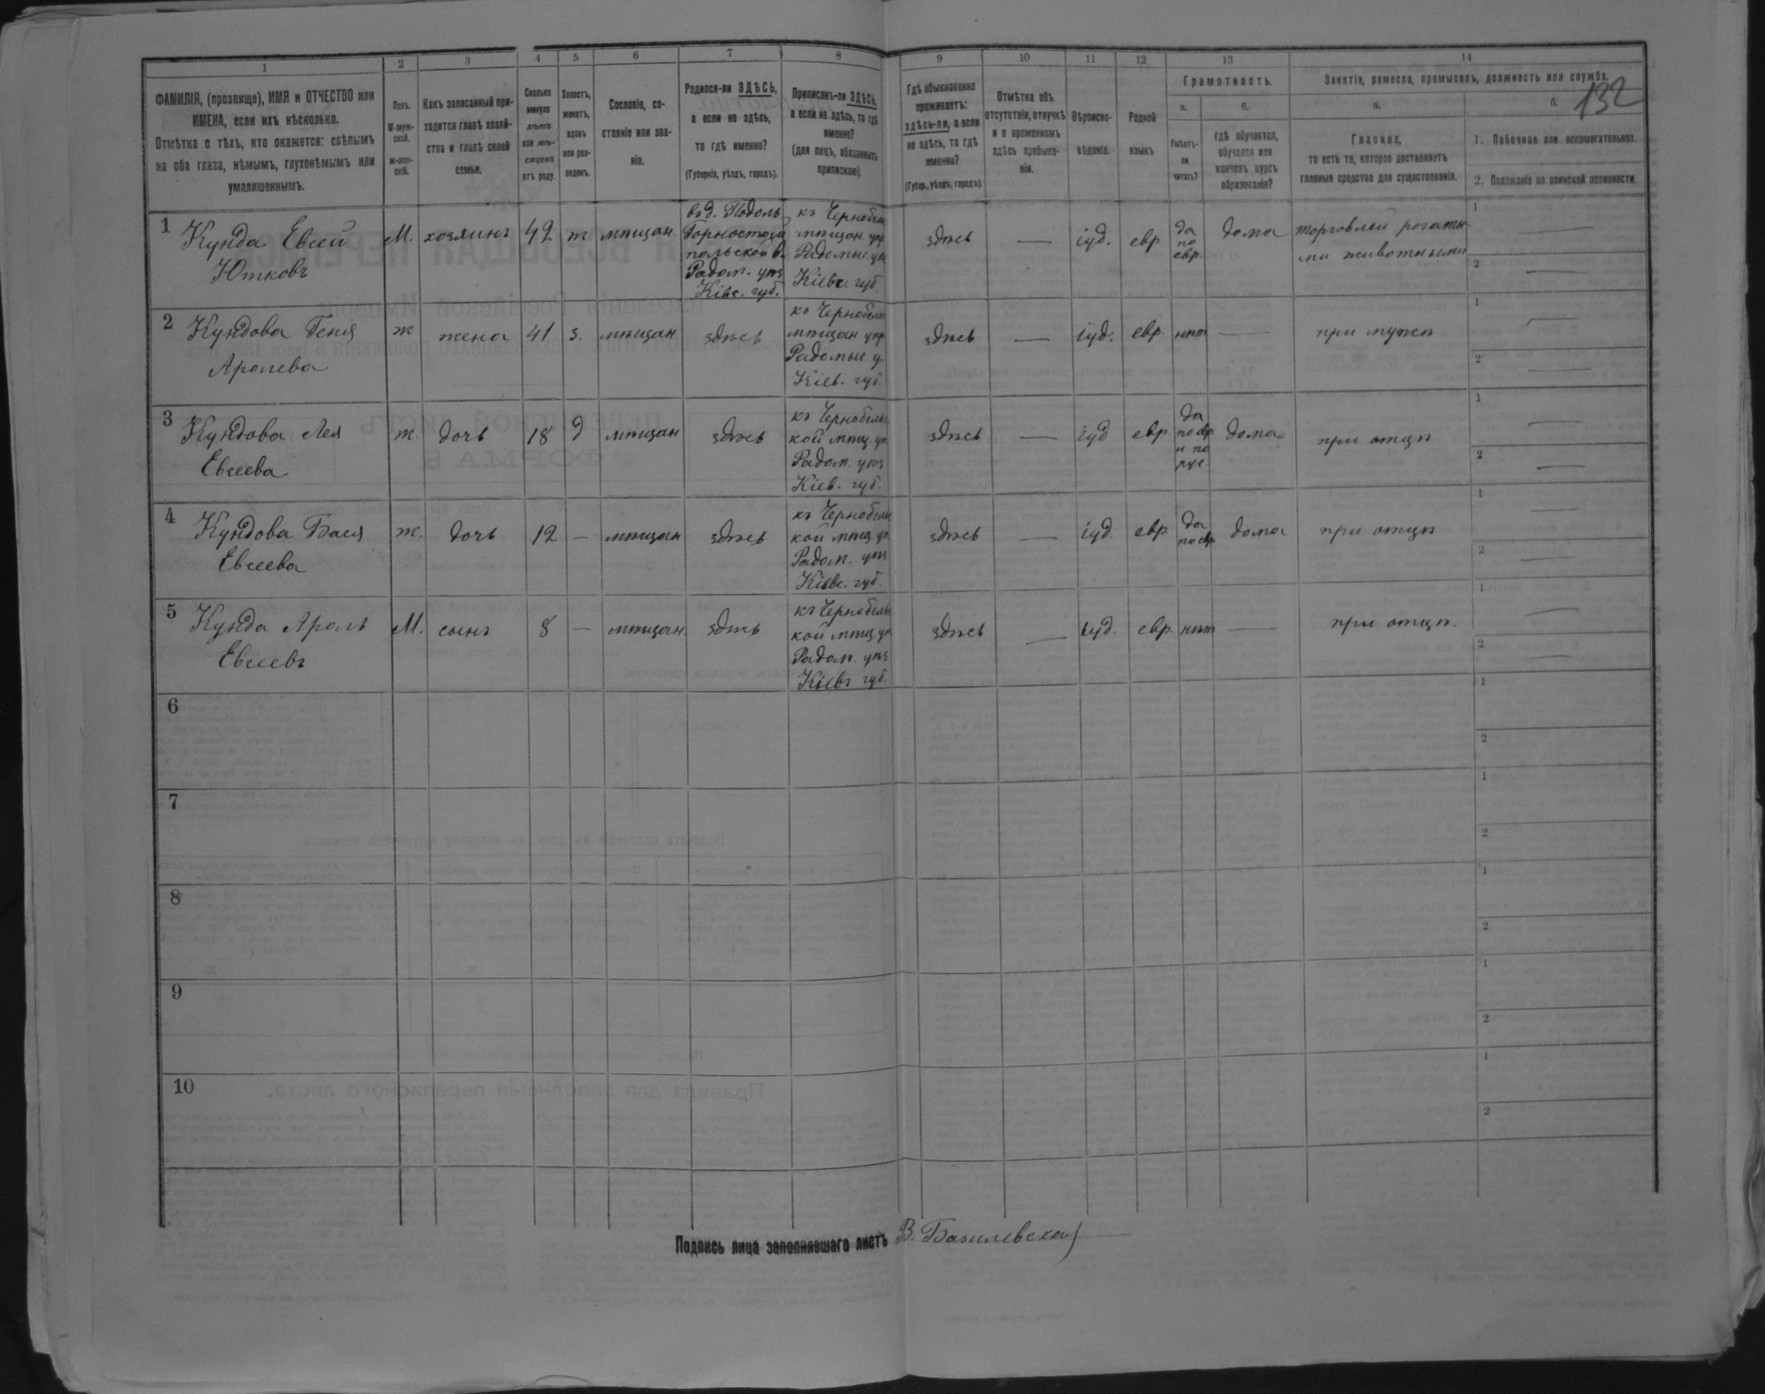 132
1 2 3 4 5 6 7 8 9 10 11 12 13 14
ФАМИЛІЯ, (прозвище), ИМЯ и ОТЧЕСТВО или
ИМЕНА, если ихъ нѣсколько.
Отмѣтка о тѣхъ, кто окажется: слѣпымъ
на оба глаза, нѣмымъ, глухонѣмымъ или
умалишеннымъ.
Полъ.
М-муж-
ской.
ж-жен-
скій.
Какъ записанный при-
ходится главѣ хозяй-
ства и главѣ своей
семьи.
Сколько
минуло
лѣтъ
или мѣ-
сяцевъ
отъ роду.
Холостъ,
женатъ,
вдовъ
или раз-
веденъ.
Сословіе, со-
стояніе или зва-
ніе.
Родился-ли ЗДѢСЬ,
а если не здѣсь,
то гдѣ именно?
(Губернія, уѣздъ, городъ).
Приписанъ-ли ЗДѢСЬ,
а если не здѣсь, то гдѣ
именно?
(для лицъ, обязанныхъ
припискою).
Гдѣ обыкновенно
проживаетъ:
здѣсь-ли, а если
не здѣсь, то гдѣ
именно?
(Губер., уѣздъ, городъ).
Отмѣтка объ
отсутствіи, отлучкѣ
и о временномъ
здѣсь пребыва-
ніи.
Вѣроиспо-
вѣданіе.
Родной
языкъ
Грамотность.
а.
Умѣетъ-
ли
читать?
б.
гдѣ обучается,
обучался или
кончилъ курсъ
образованія?
Занятія, ремесло, промыселъ, должность или служба.
а.
Главное,
то есть то, которое доставляетъ
главныя средства для существованія.
б.
1. Побочное или вспомогательное.
2. Положеніе по воинской повинности.
1 Кунда Евсей
Ютковъ
М. хозяинъ 42 ж мѣщан
Горностай
польской в.
Радом. уѣз
Кіев. губ.
къ Чернобыл
мѣщан упр
Радомыс. уѣз
Кіевс. губ.
здѣсь — іуд. евр
да
по
евр.
дома торговлей рогаты-
ми животными
1 —
2 —
2 Кундова Геня
Аролева
ж жена 41 з. мѣщан здѣсь
къ Чернобыл
мѣщан упр
Радомыс у.
Кіев. губ.
здѣсь — іуд. евр нѣт — при мужѣ
1 —
2 —
3 Кундова Лея
Евсеева
ж. дочь 18 д мѣщан здѣсь
къ Чернобыльс
кой мѣщ. уп
Радом. уѣз
Кіев. губ.
здѣсь — іуд евр
да
по евр
и по
рус.
дома при отцѣ
1 —
2 —
4 Кундова Бася
Евсеева
ж. дочь 12 — мѣщан здѣсь
къ Чернобыльс
кой мѣщ. уп
Радом. уѣз
Кіевс. губ.
здѣсь — іуд. евр
да
по евр
дома при отцѣ
1
2 —
5 Кунда Ароль
Евсеевъ
М. сынъ 8 — мѣщан. здѣсь
къ Чернобыльс
кой мѣщ уп
Радом. уѣз
Кіевъ губ.
здѣсь — іуд. евр нѣт — при отцѣ.
1 —
2 —
6
1
2
7
1
2
8
1
2
9
1
2
10
1
2
Подпись лица заполнявшаго листъ В. Базилевская